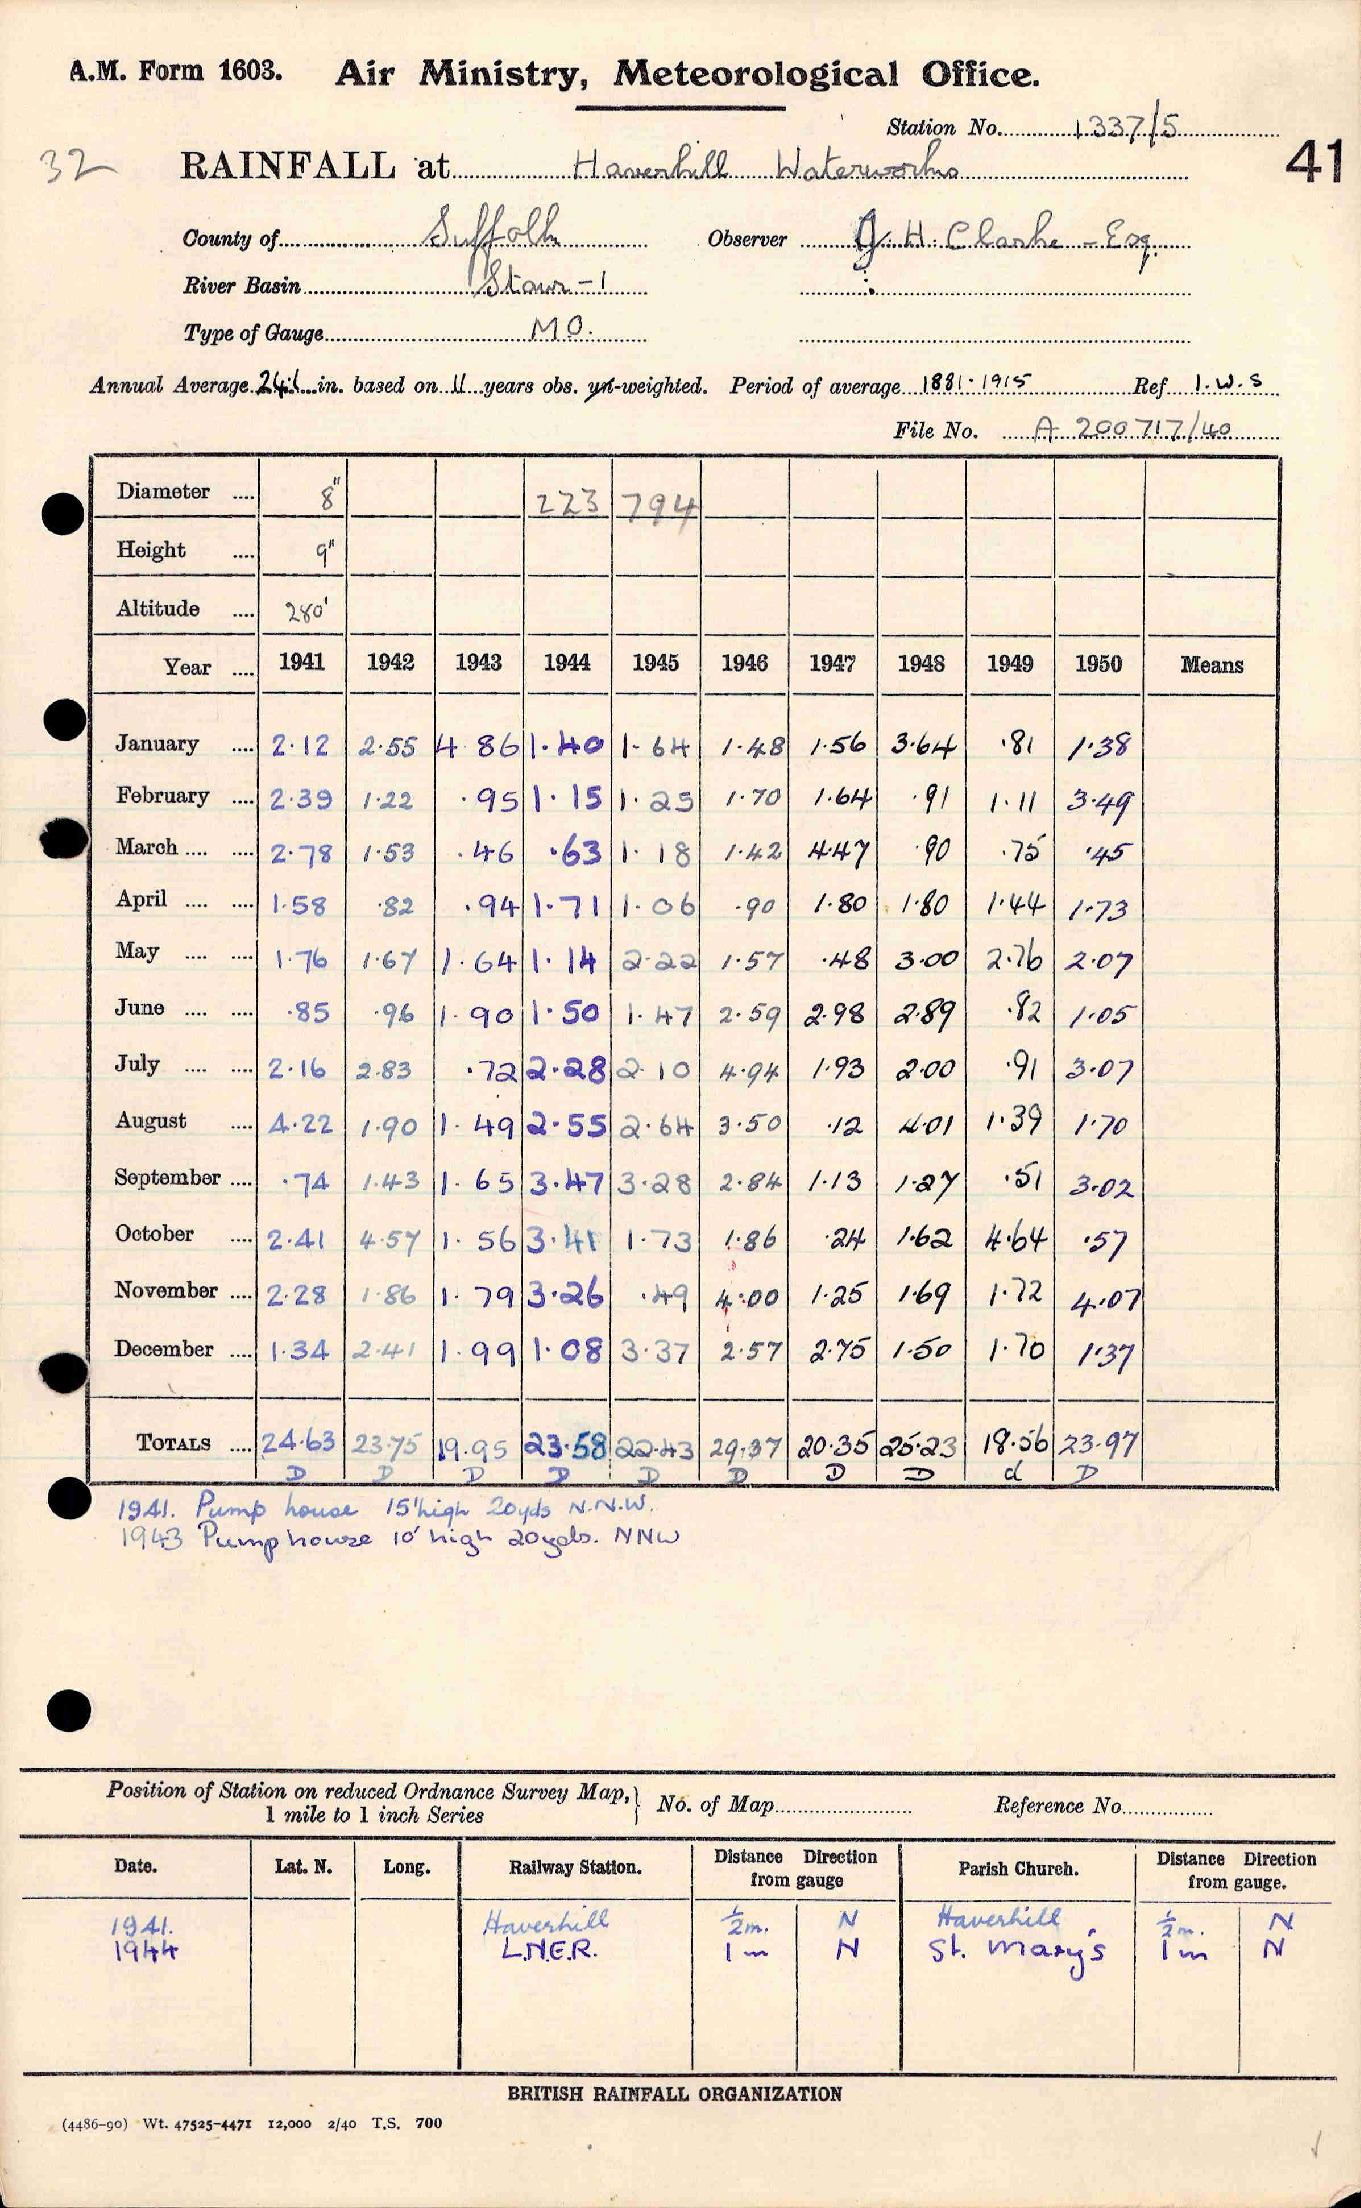 A.M. Form 1603. Air Ministry, Meteorological Office.
Station No. 1337/5
32 RAINFALL at Haverhill Waterworks 41
County of Suffolk Observer J. H. Clarke - Esq.
River Basin Stour - 1
Type of Gauge M O.
Annual Average 24.1 in. based on 11 years obs. un-weighted. Period of average 1881-1915 Ref I.W.S
File No. A 200717/40
Diameter .... 8" 223 794
Height .... 9"
Altitude .... 280'
Year .... 1941 1942 1943 1944 1945 1946 1947 1948 1949 1950 Means
January .... 2.12 2.55 4.86 1.40 1.64 1.48 1.56 3.64 .81 1.38
February .... 2.39 1.22 .95 1.15 1.25 1.70 1.64 .91 1.11 3.49
March .... .... 2.78 1.53 .46 .63 1.18 1.42 4.47 .90 .75 .45
April .... .... 1.58 .82 .94 1.71 1.06 .90 1.80 1.80 1.44 1.73
May .... .... 1.76 1.67 1.64 1.14 2.22 1.57 .48 3.00 2.76 2.07
June .... .... .85 .96 1.90 1.50 1.47 2.59 2.98 2.89 .82 1.05
July .... .... 2.16 2.83 .72 2.28 2.10 4.94 1.93 2.00 .91 3.07
August .... 4.22 1.90 1.49 2.55 2.64 3.50 .12 4.01 1.39 1.70
September .... .74 1.43 1.65 3.47 3.28 2.84 1.13 1.27 .51 3.02
October .... 2.41 4.57 1.56 3.41 1.73 1.86 .24 1.62 4.64 .57
November .... 2.28 1.86 1.79 3.26 .49 4.00 1.25 1.69 1.72 4.07
December .... 1.34 2.41 1.99 1.08 3.37 2.57 2.75 1.50 1.70 1.37
TOTALS .... 24.63 23.75 19.95 23.58 22.43 29.37 20.35 25.23 18.56 23.97
D D D D D D D D d D
1941. Pump house 15' high 20yds N.N.W.
1943 Pump house 10' high 20yds. NNW
Position of Station on reduced Ordnance Survey Map, } No. of Map Reference No.
1 mile to 1 inch Series
Date. Lat. N. Long. Railway Station. Distance Direction from gauge Parish Church. Distance Direction from gauge.
1941. Haverhill ½m. N Haverhill ½m. N
1944 L.N.E.R. 1 m N St. Mary's 1 m N
BRITISH RAINFALL ORGANIZATION
(4486-90) Wt. 47525-4471 12,000 2/40 T.S. 700